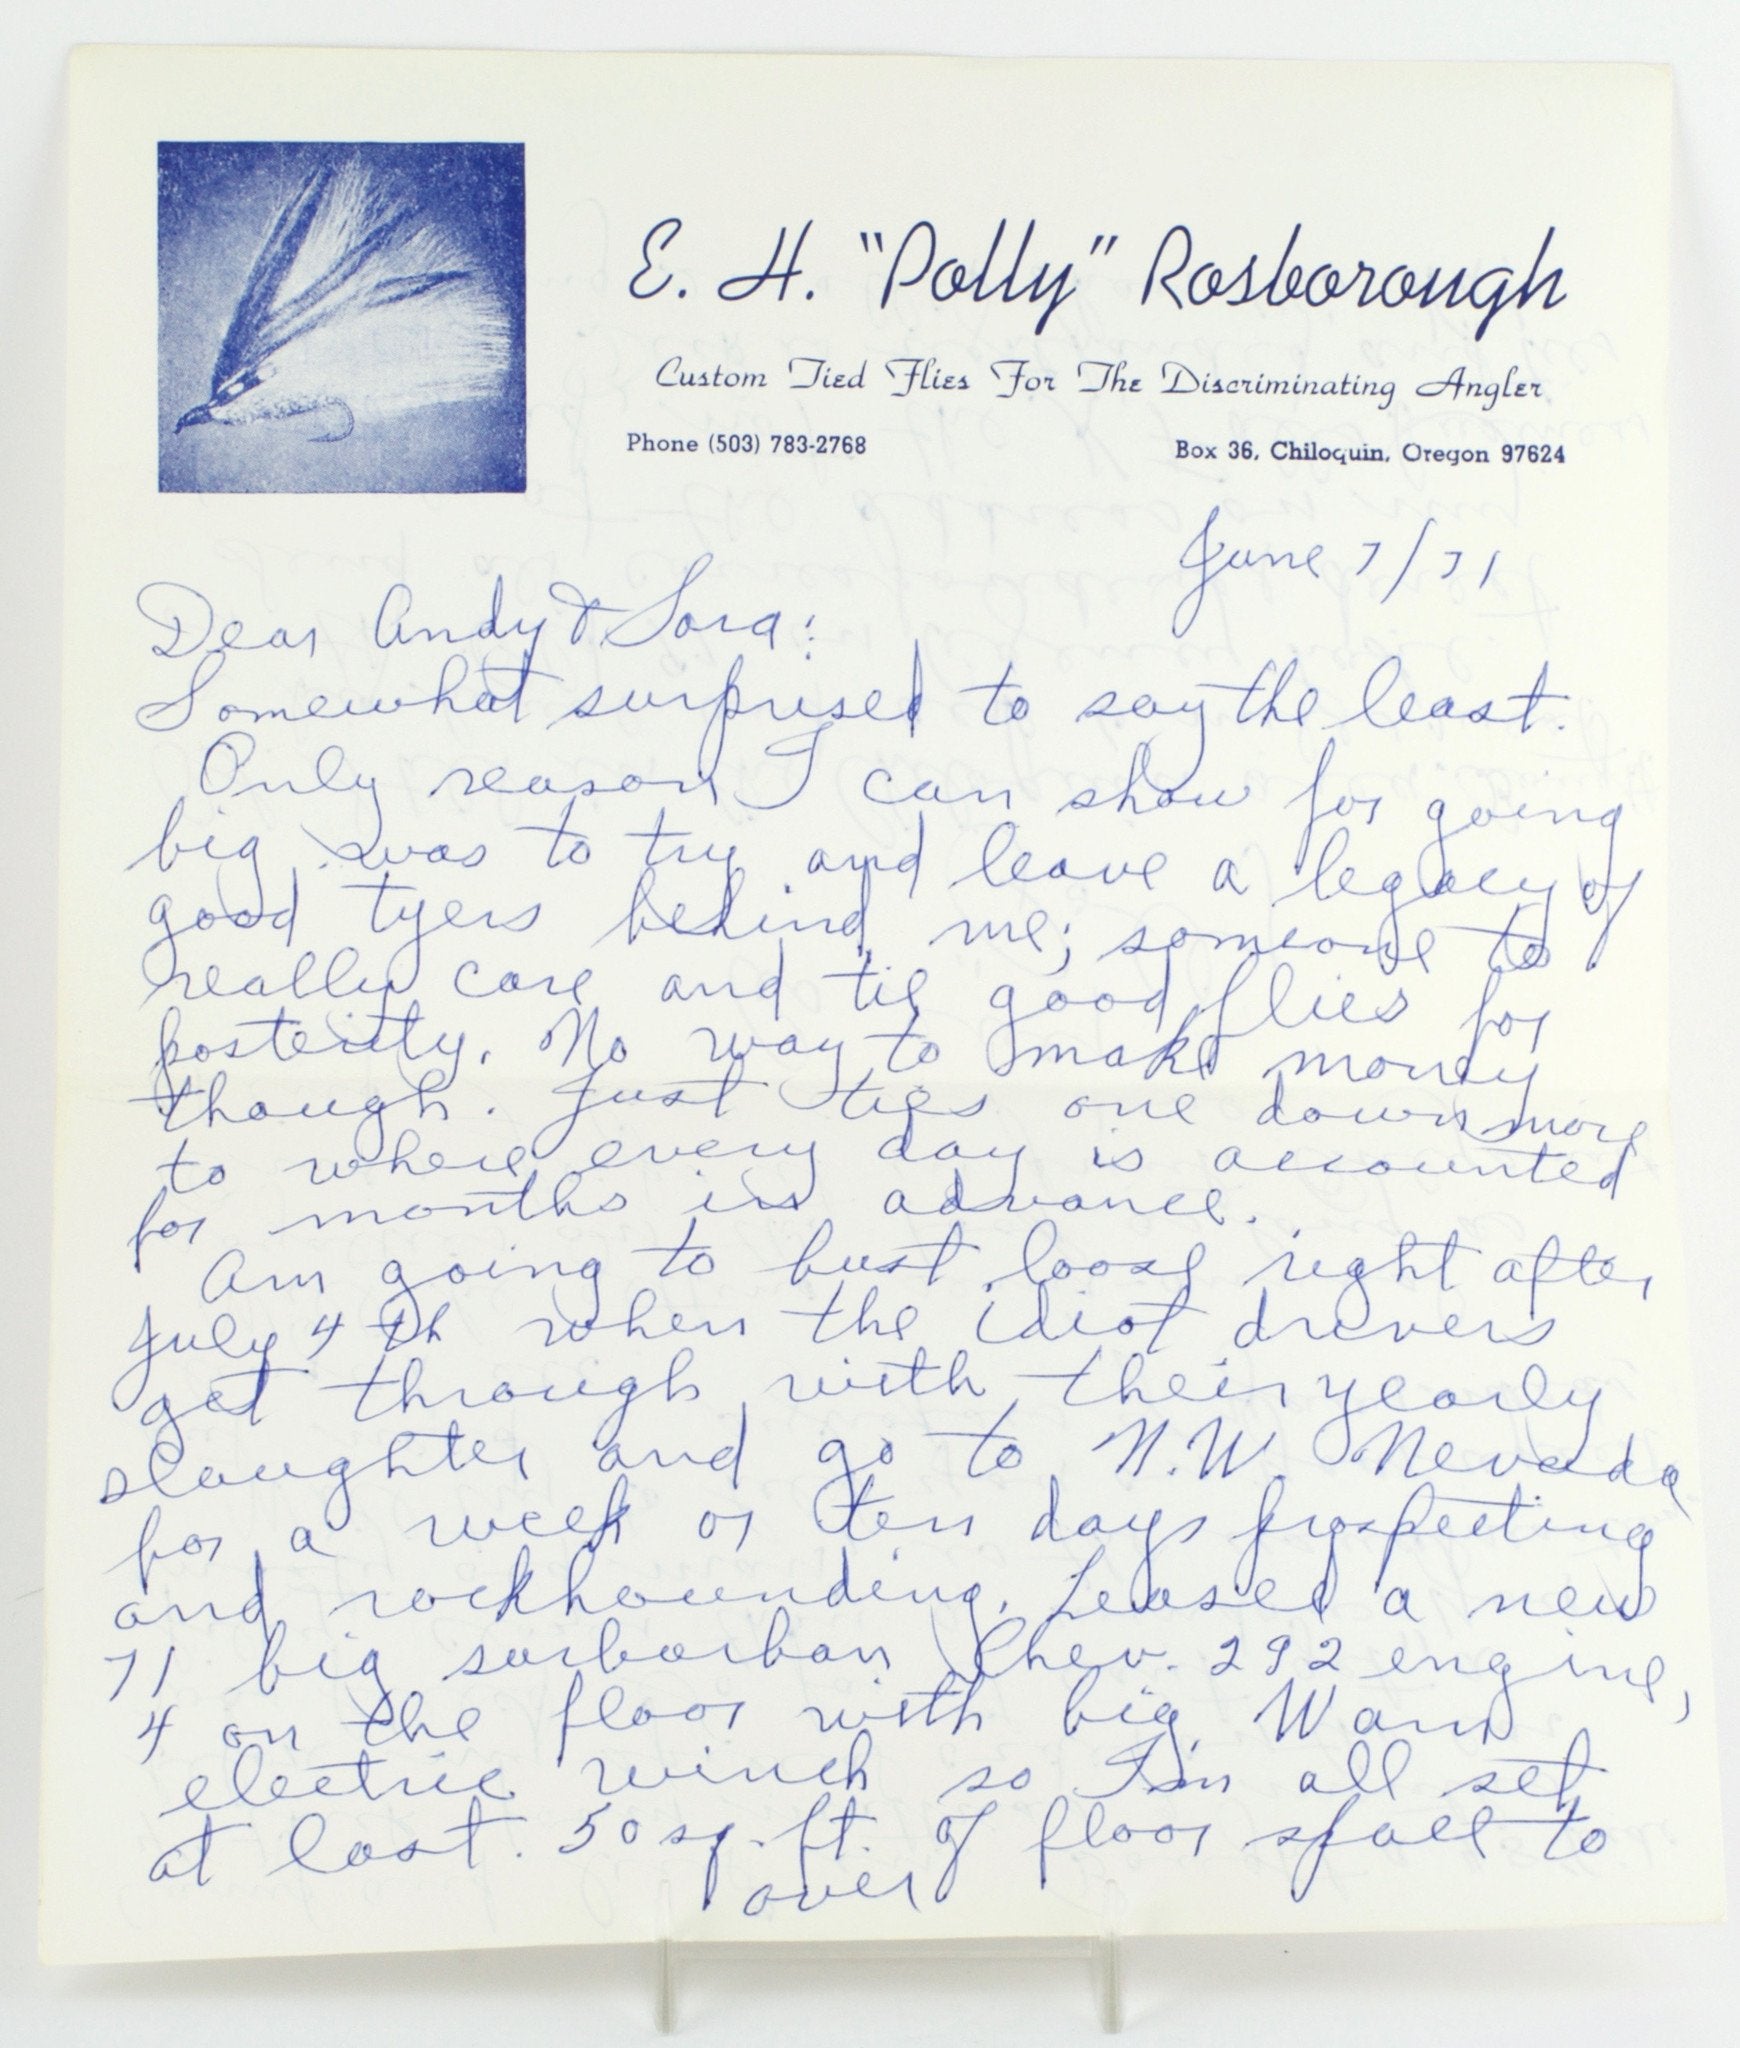 E. H. "Polly" Rosborough
Custom Tied Flies For The Discriminating Angler
Phone (503) 783-2768
Box 36, Chiloquin, Oregon 97624
June 7/71
Dear Andy & Sara:
Somewhat surprised to say the least.
Only reason I can show for going
big was to try and leave a legacy of
good tyers behind me; someone to
really care and tie good flies for
posterity. No way to make money
though. Just ties one down more
to where every day is accounted
for months in advance.
Am going to bust loose right after
July 4th when the idiot drivers
get through with their yearly
slaughter and go to N.W. Nevada
for a week or ten days prospecting
and rockhounding. Leased a new
71 big surborban Chev. 292 engine,
4 on the floor with big Warn
electric winch so I'm all set
at last. 50 sq. ft. of floor space to
over